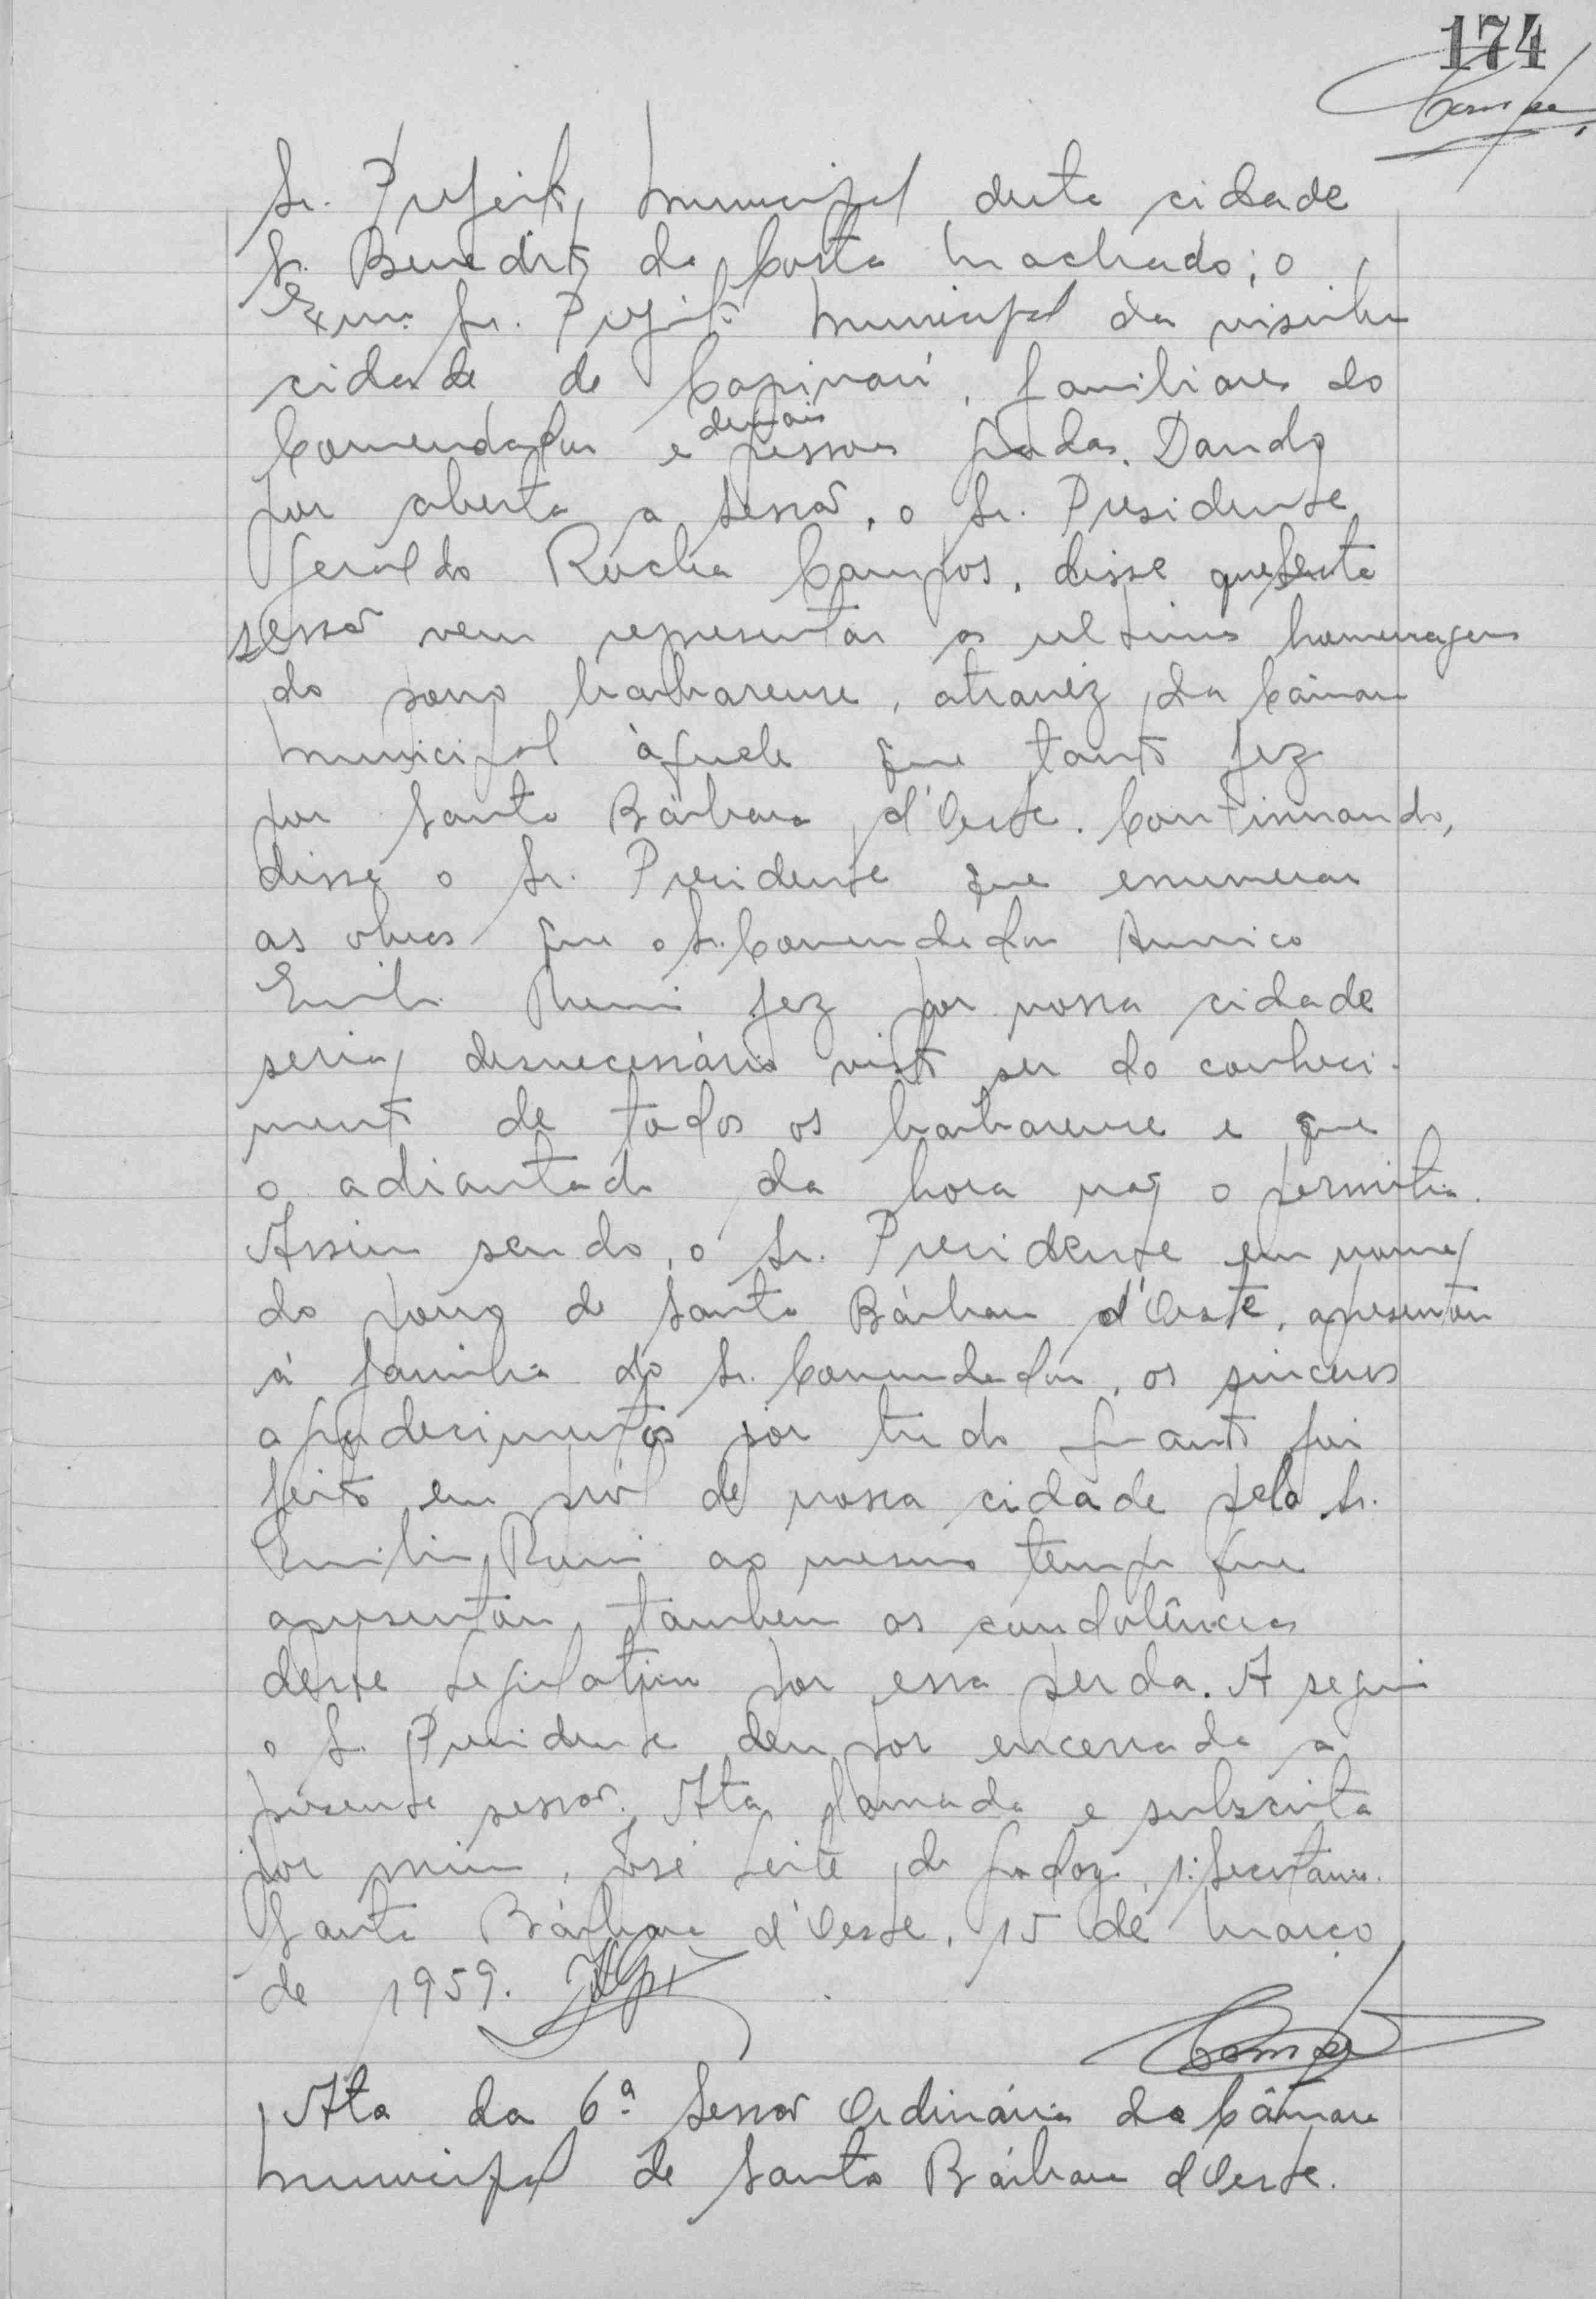 174
Campos
Sr. Prefeito Municipal desta cidade
Sr. Benedito da Costa Machado; o
Exmo. Sr. Prefeito Municipal da visinha
cidade de Capivarí, familiares do
Comendador e demais pessoas gradas. Dando
por aberta a sessão, o Sr. Presidente
Geraldo Rocha Campos, disse que esta
sessão vem representar as ultimas homenagens
do povo barbarense, atravéz da Câmara
Municipal àquele que tanto fez
por Santa Bárbara d'Oeste. Continuando,
disse o Sr. Presidente que enumerar
as obras que o Sr. Comendador Americo
Emilio Romi fez por nossa cidade
seria desnecessário visto ser do conheci-
mento de todos os barbarense e que
o adiantado da hora não o permitia.
Assim sendo, o Sr. Presidente em nome
do povo de Santa Bárbara d'Oeste, apresentou
à familia do Sr. Comendador, os sinceros
agradecimentos por tudo quanto foi
feito em pról de nossa cidade pelo Sr.
Emilio Romi ao mesmo tempo que
apresentou tambem as condolências
deste Legislativo por essa perda. A seguir
o Sr. Presidente deu por encerrada a
presente sessão. Ata lavrada e subscrita
por mim, José Leite de Godoy, 1º Secretário.
Santa Bárbara d'Oeste, 15 de Março
de 1959.
Campos
Ata da 6ª Sessão Ordinária da Câmara
Municipal de Santa Bárbara d'Oeste.